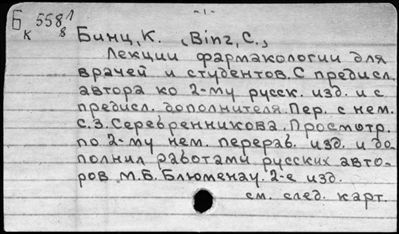 - 1 -
Б 558 1/8
к
Бинц, К. (Binz, C.,)
Лекции фармакологии для
врачей и студентов. С предисл.
автора ко 2-му русск. изд. и с
предисл. дополнителя. Пер. с нем.
С.З. Серебренникова. Просмотр.
по 2-му нем. перераб. изд. и до-
полнил работами русских авто-
ров М.Б. Блюменау. 2-е изд.
см. след. карт.